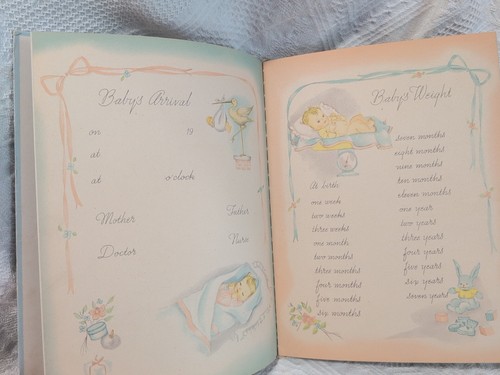 Baby's Arrival
on 19
at
at o'clock
Mother Father
Doctor Nurse
Baby's Weight
At birth
one week
two weeks
three weeks
one month
two months
three months
four months
five months
six months
seven months
eight months
nine months
ten months
eleven months
one year
two years
three years
four years
five years
six years
seven years